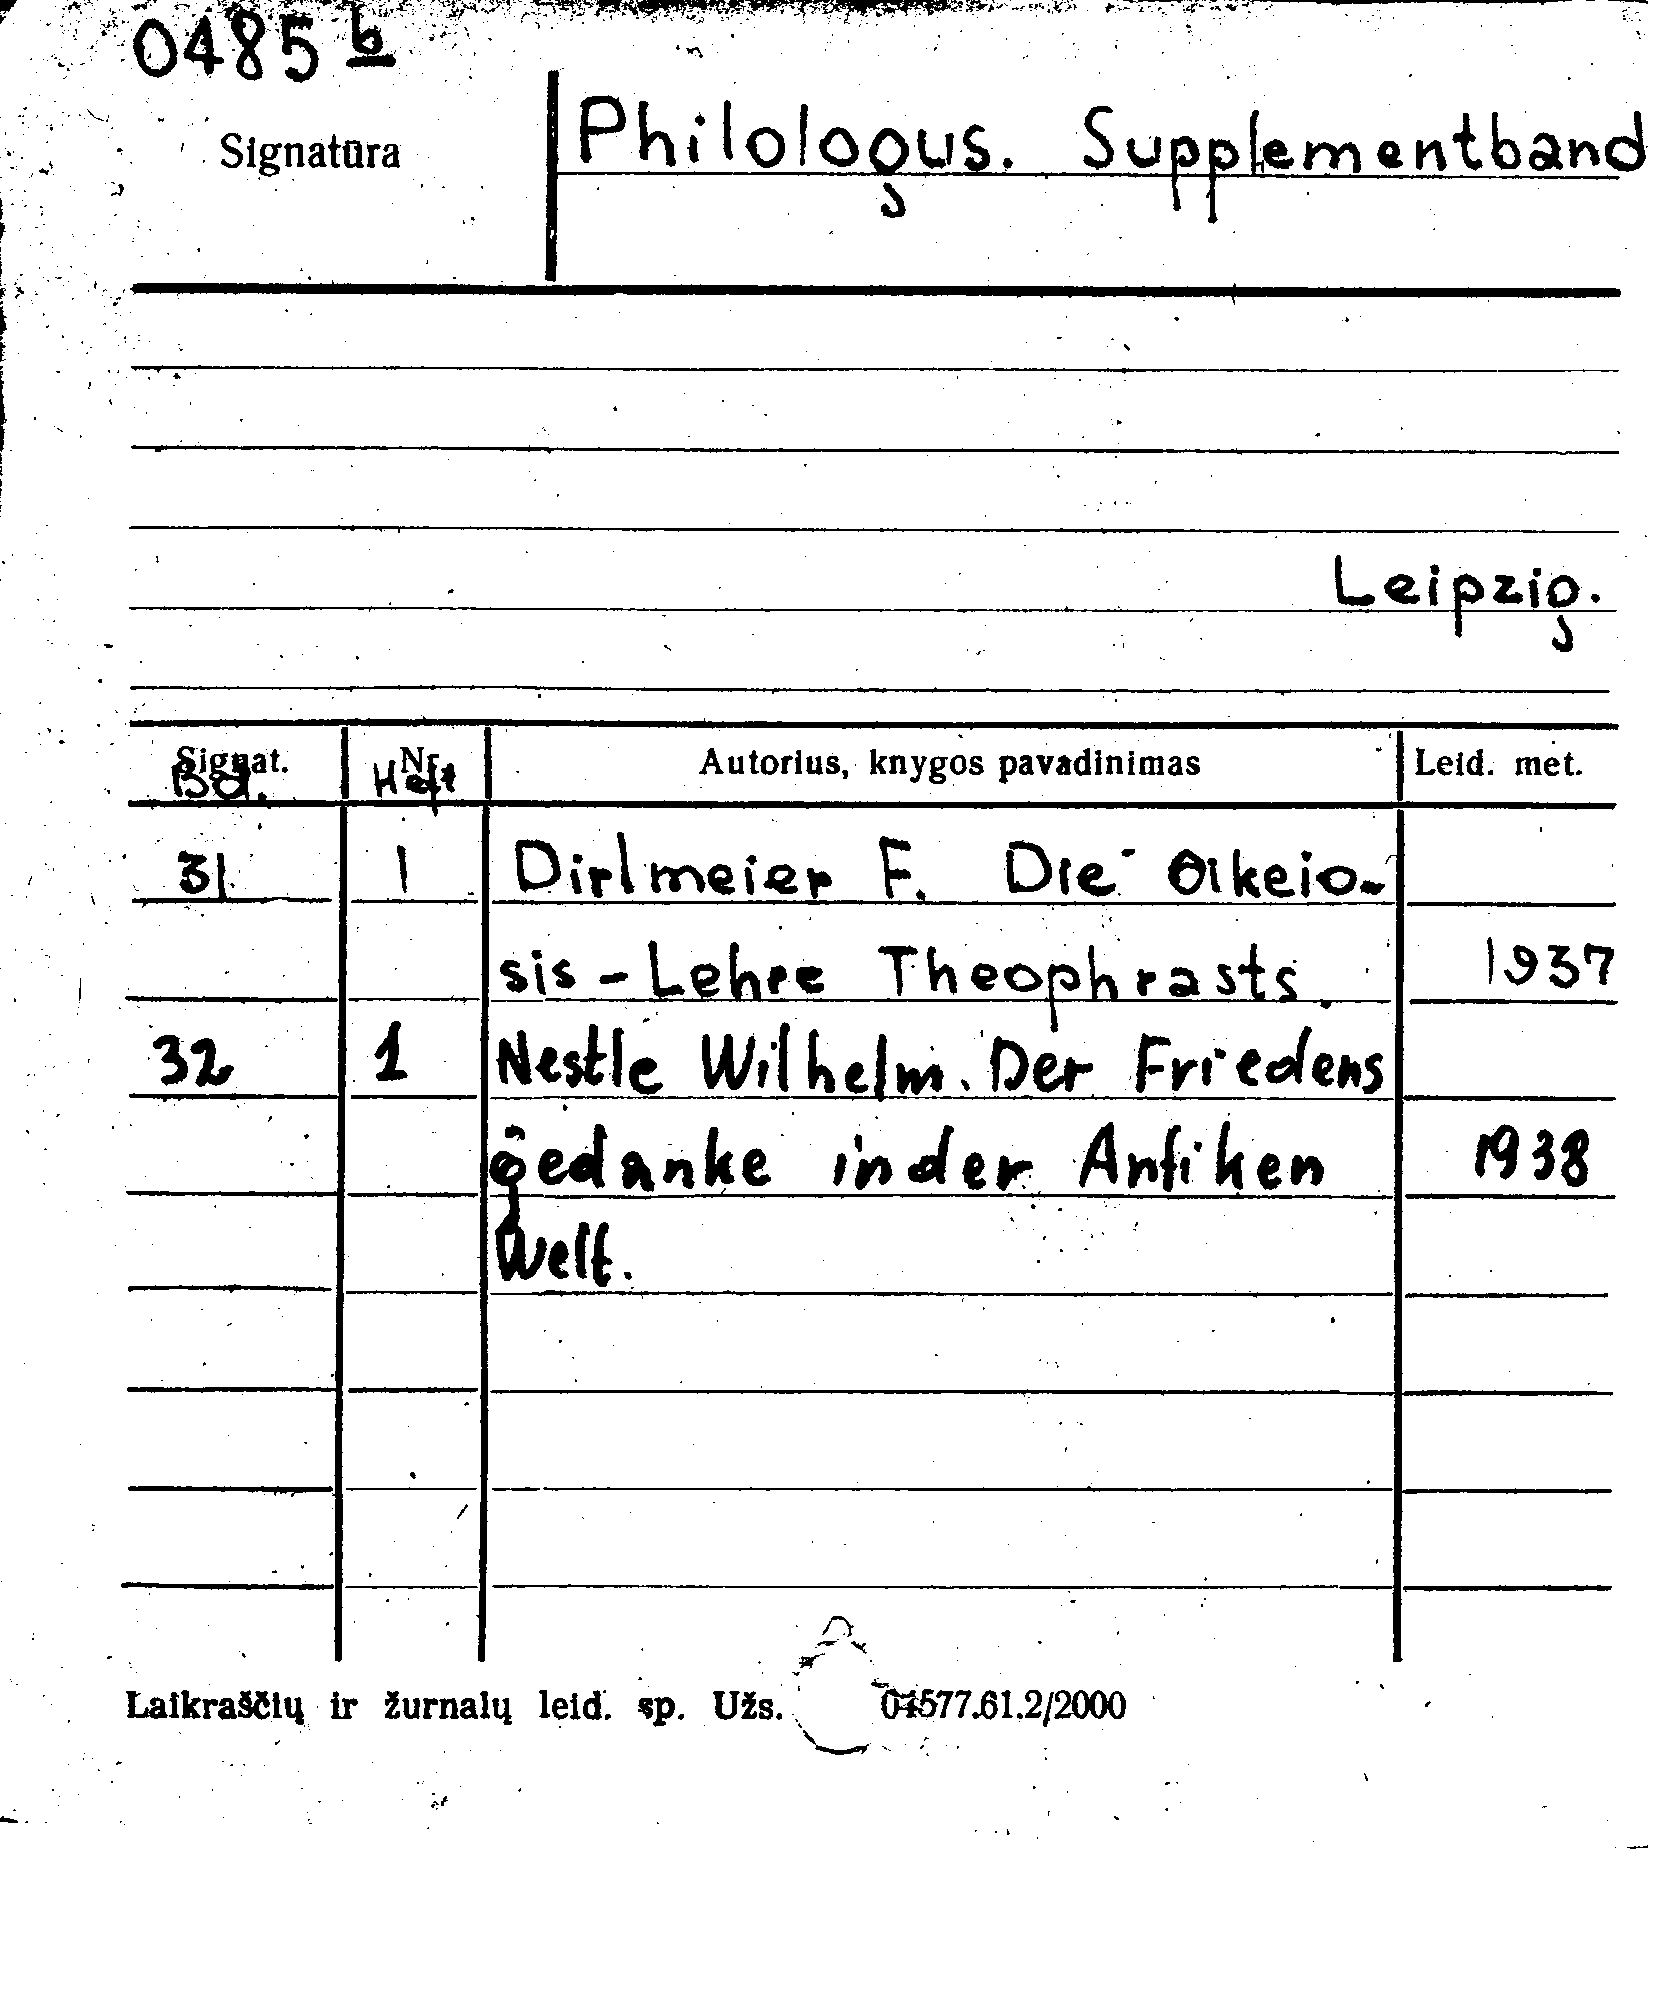 0485 b
Signatūra
Philologus. Supplementband
Leipzig.
Signat. Nr. Autorius, knygos pavadinimas Leid. met.
Bd. Heft
31 1 Dirlmeier F. Die Oikeio-
sis - Lehre Theophrasts. 1937
32 1 Nestle Wilhelm. Der Friedens
gedanke in der Antiken 1938
Welt.
Laikraščių ir žurnalų leid. sp. Užs. 04577.61.2/2000